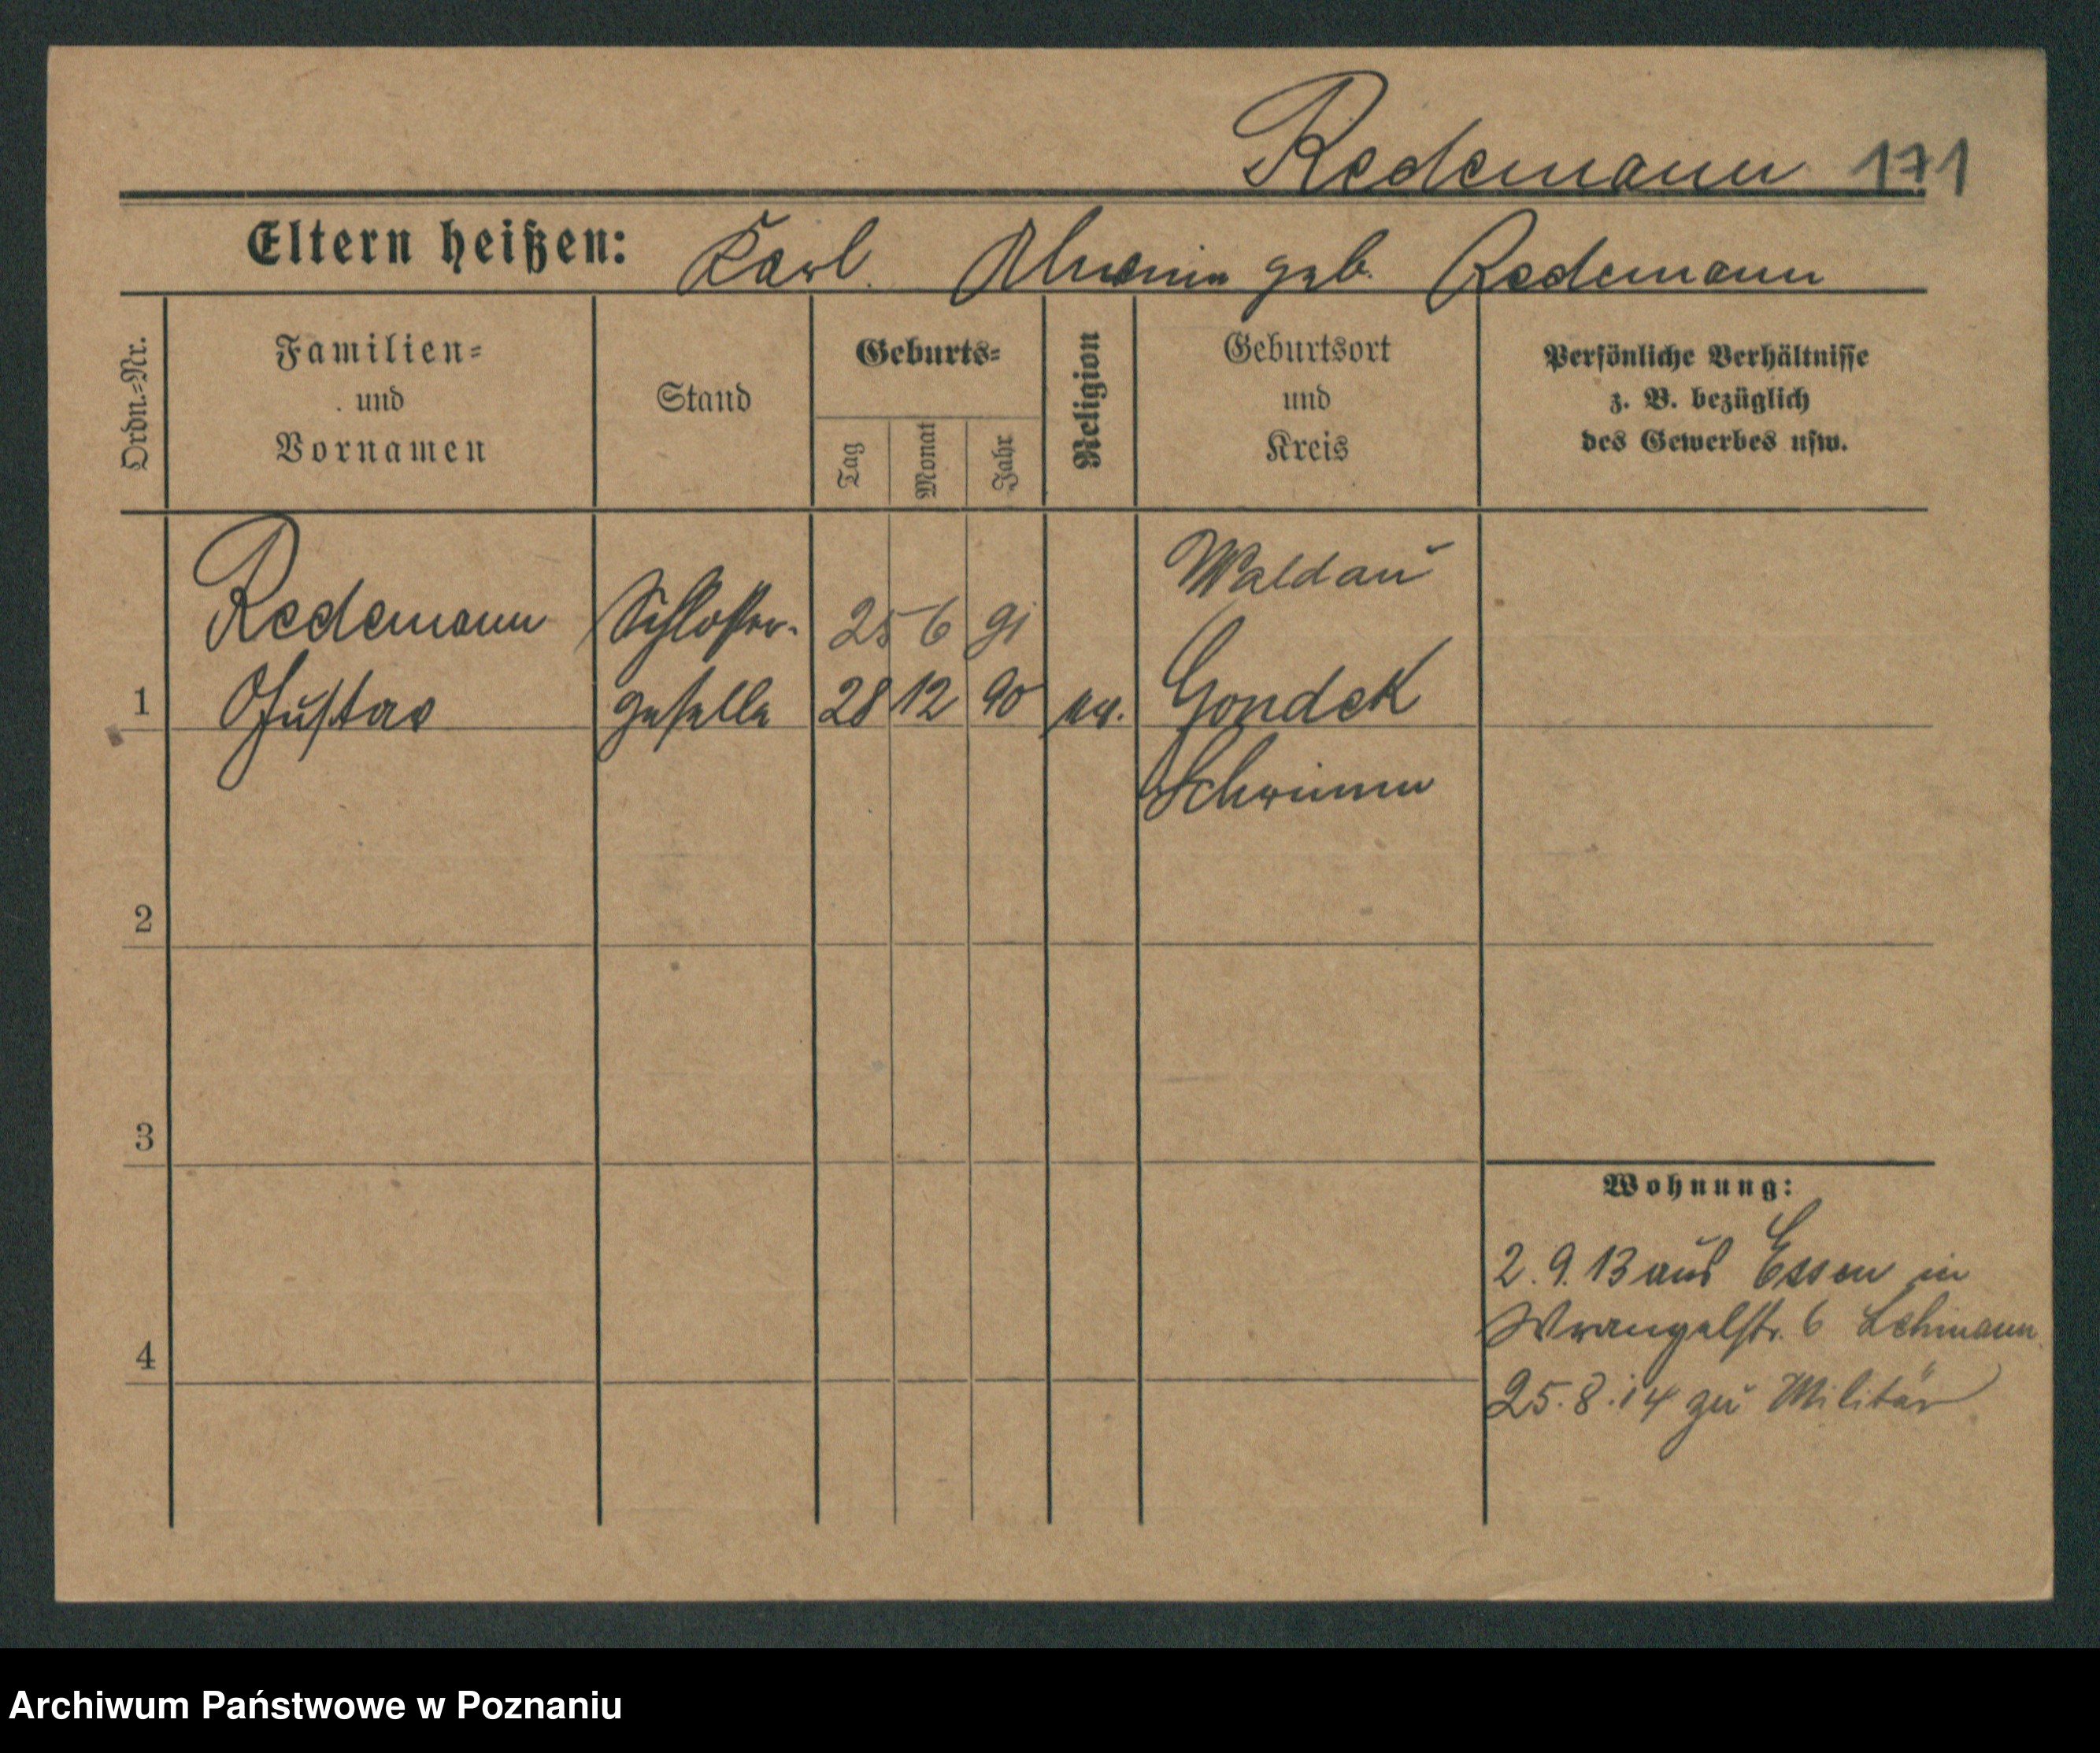 Redemann 171
Eltern heißen: Karl. Alwine geb. Redemann
Ordn.-Nr.
Familien-
und
Vornamen
Stand
Geburts-
Tag
Monat
Jahr
Religion
Geburtsort
und
Kreis
Persönliche Verhältnisse
z. B. bezüglich
des Gewerbes usw.
Waldau
Redemann Schlosser- 25 6 91
1 Gustav geselle 28 12 90 ev. Gondek
Schrimm
2
3
Wohnung:
2. 9. 13 aus Essen in
Wrangelstr. 6 Lehmann
4
25. 8. 14 zu Militär
Archiwum Państwowe w Poznaniu